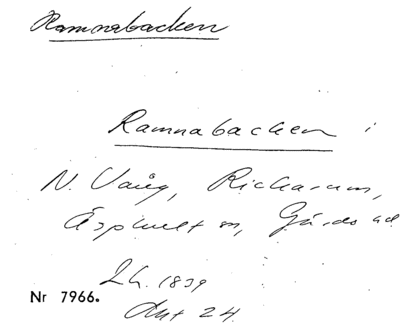 Ramnabacken
Ramnabacken i
N. Vång, Rickarum,
Äsphult m, Gärds hd
Lh. 1839
Nr 7966.
Akt 24